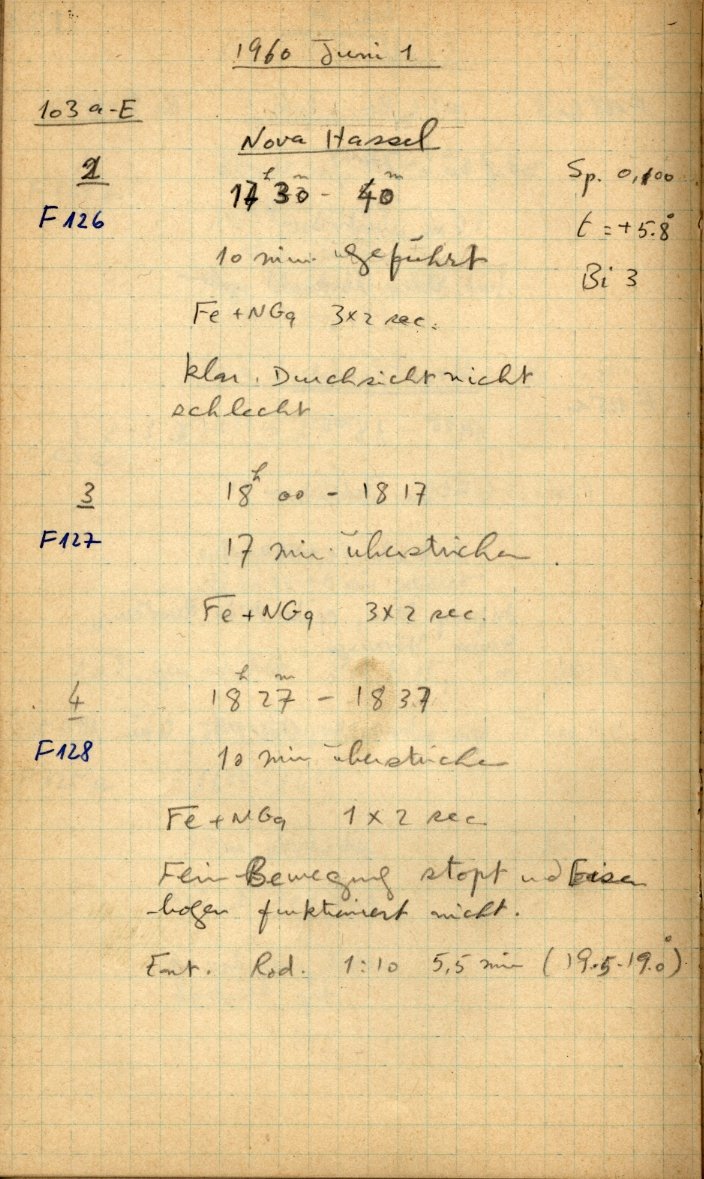 1960 Juni 1
103 a-E
Nova Hassel
2
17h 30m - 40m
Sp. 0,100
F 126
t = +5.8°
10 min geführt
Bi 3
Fe + NGq 3x2 sec.
klar. Durchsicht nicht
schlecht
3
18h 00 - 18 17
F127
17 min überstrichen
Fe + NGq 3x2 sec.
4
18h 27m - 18 37
F128
10 min überstrichen
Fe + NGq 1x2 sec
Fein-Bewegung stopt und Eisen
bogen funktioniert nicht.
Ent. Rod. 1:10 5,5 min (19.5-19.0°)